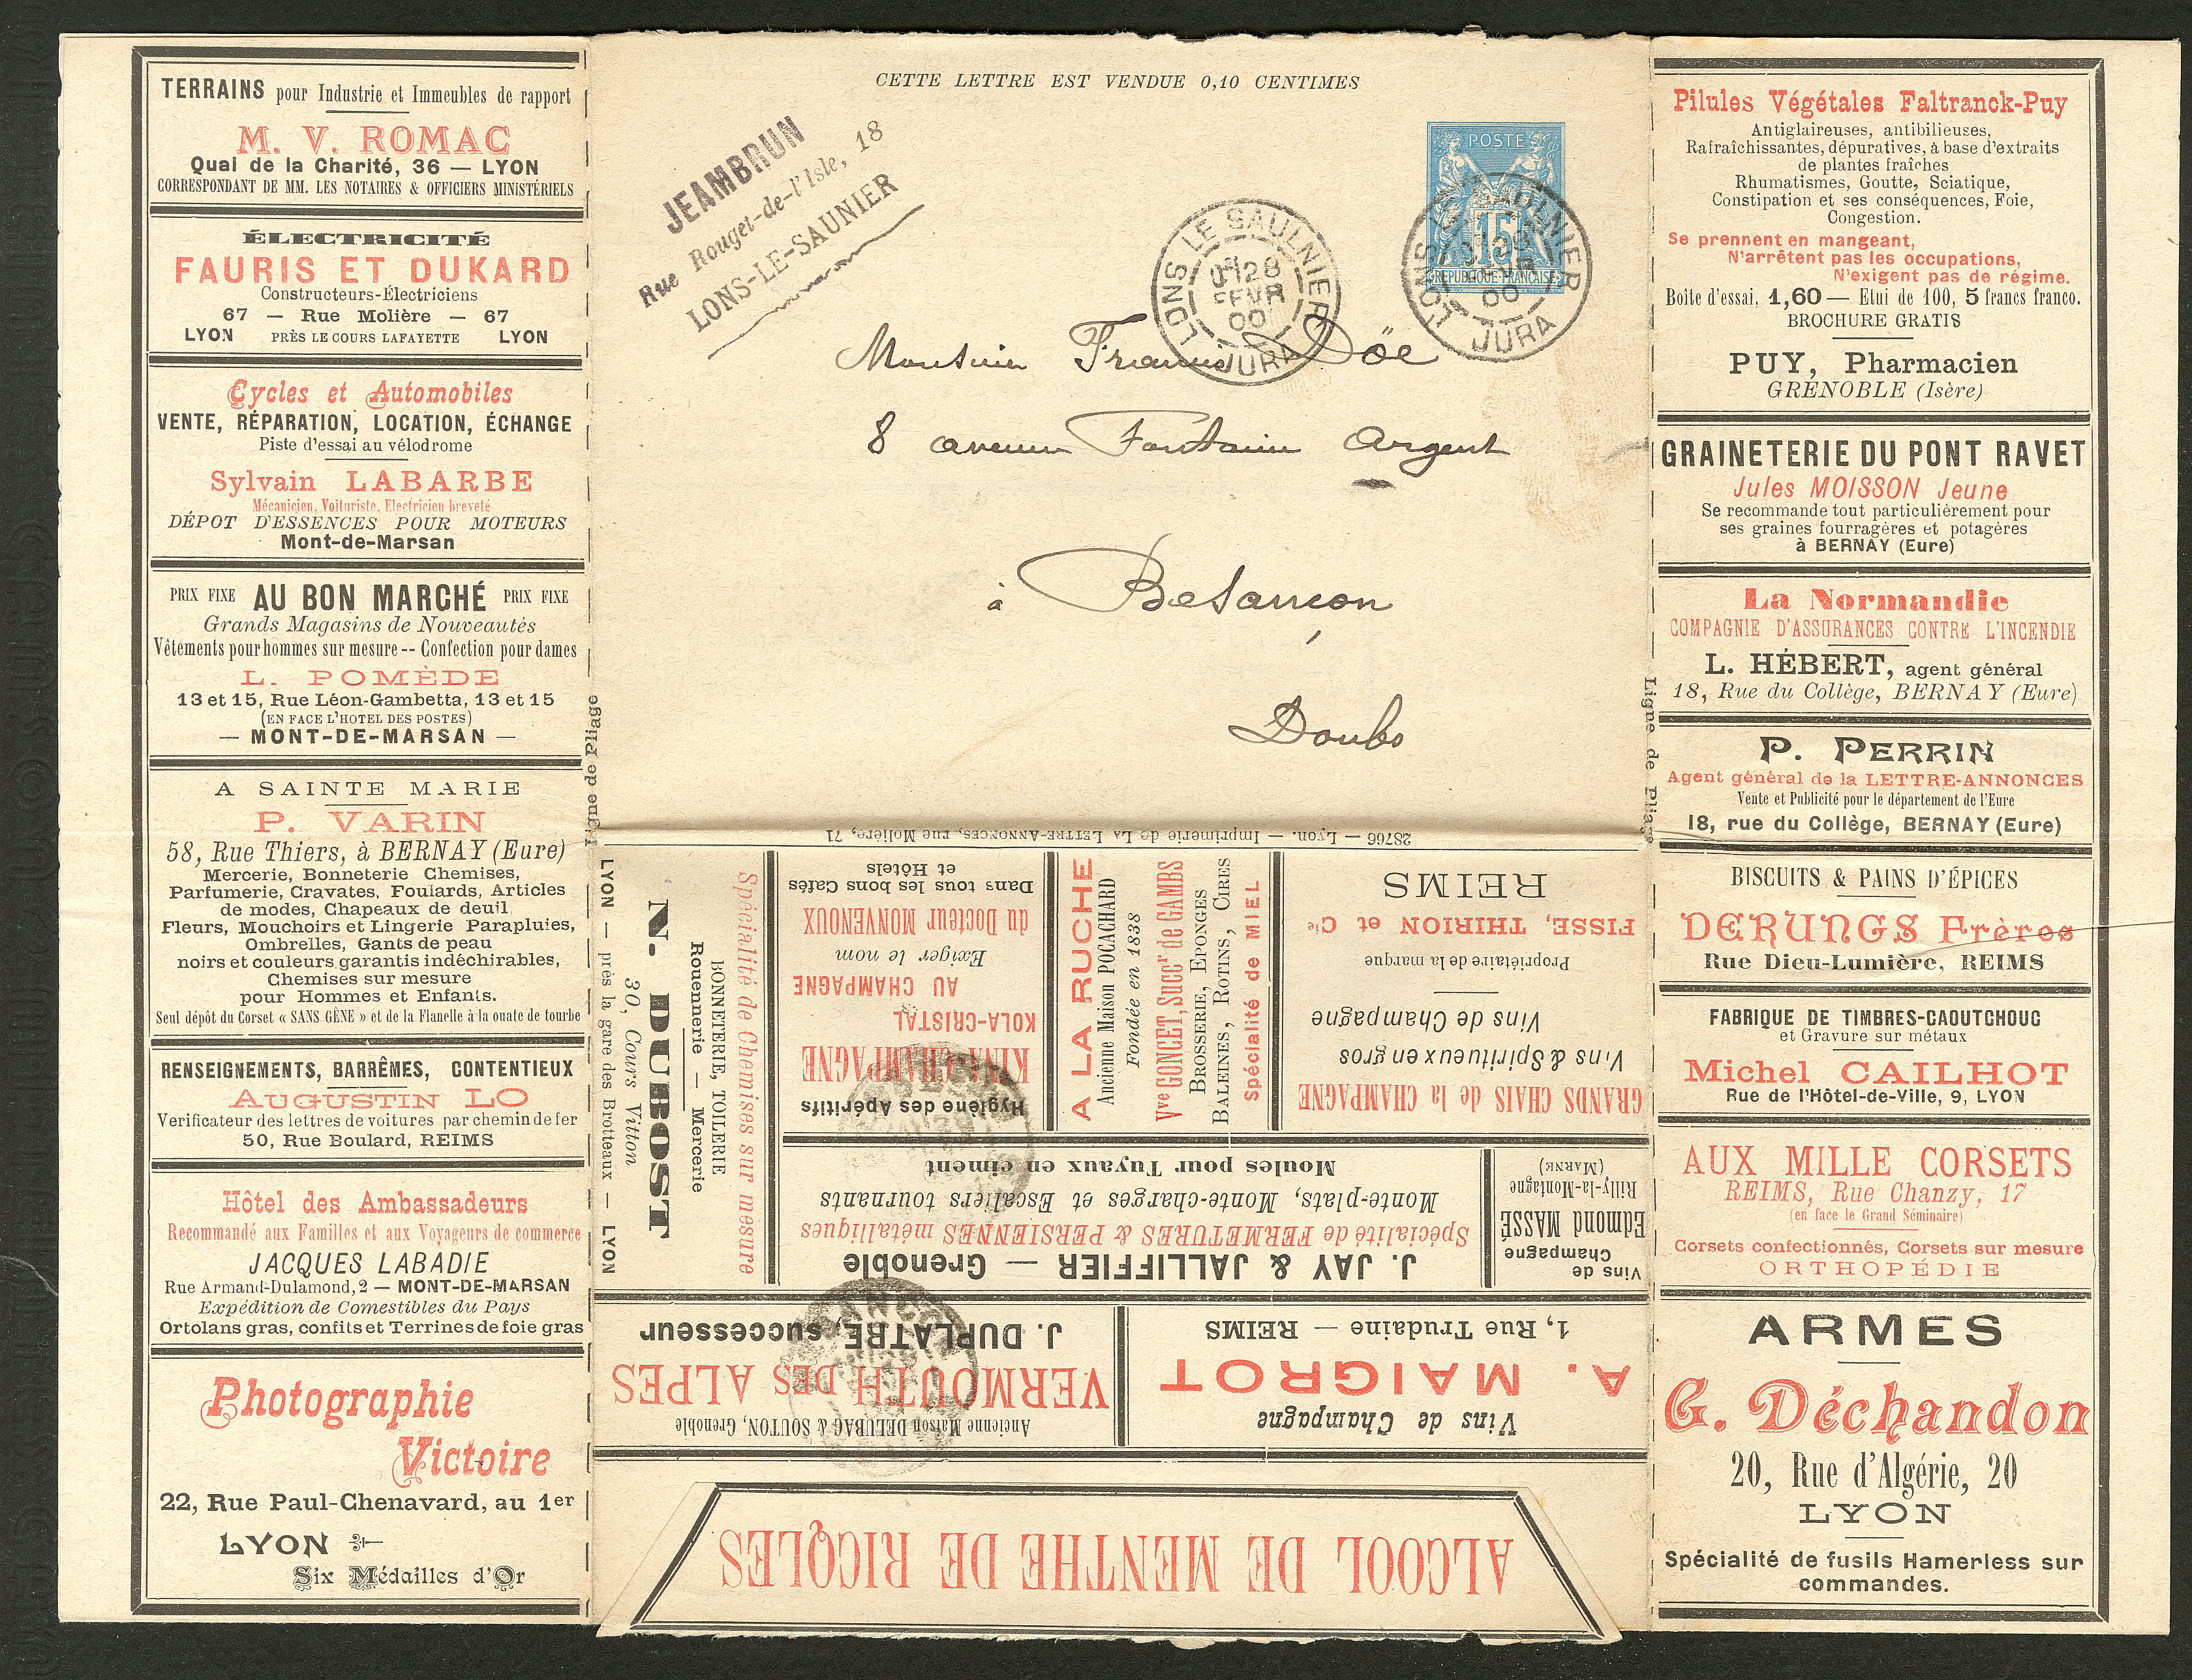 CETTE LETTRE EST VENDUE 0,10 CENTIMES
JEAMBRUN
Rue Rouget-de-l'Isle, 18
LONS-LE-SAUNIER
POSTE
15
REPUBLIQUE FRANÇAISE
LONS LE SAULNIER
28
FEVR
00
JURA
LONS LE SAULNIER
28
FEVR
00
JURA
Monsieur Francis Döe
8 avenue Fontaine Argent
à Besançon
Doubs
TERRAINS pour Industrie et Immeubles de rapport
M. V. ROMAC
Quai de la Charité, 36 — LYON
CORRESPONDANT DE MM. LES NOTAIRES & OFFICIERS MINISTÉRIELS
ÉLECTRICITÉ
FAURIS ET DUKARD
Constructeurs-Électriciens
67 — Rue Molière — 67
LYON PRÈS LE COURS LAFAYETTE LYON
Cycles et Automobiles
VENTE, RÉPARATION, LOCATION, ÉCHANGE
Piste d'essai au vélodrome
Sylvain LABARBE
Mécanicien, Voituriste, Electricien breveté
DÉPOT D'ESSENCES POUR MOTEURS
Mont-de-Marsan
PRIX FIXE AU BON MARCHÉ PRIX FIXE
Grands Magasins de Nouveautés
Vêtements pour hommes sur mesure -- Confection pour dames
L. POMÈDE
13 et 15, Rue Léon-Gambetta, 13 et 15
(EN FACE L'HOTEL DES POSTES)
— MONT-DE-MARSAN —
A SAINTE MARIE
P. VARIN
58, Rue Thiers, à BERNAY (Eure)
Mercerie, Bonneterie Chemises,
Parfumerie, Cravates, Foulards, Articles
de modes, Chapeaux de deuil
Fleurs, Mouchoirs et Lingerie Parapluies,
Ombrelles, Gants de peau
noirs et couleurs garantis indéchirables,
Chemises sur mesure
pour Hommes et Enfants.
Seul dépôt du Corset « SANS GÊNE » et de la Flanelle à la ouate de tourbe
RENSEIGNEMENTS, BARRÊMES, CONTENTIEUX
AUGUSTIN LO
Verificateur des lettres de voitures par chemin de fer
50, Rue Boulard, REIMS
Hôtel des Ambassadeurs
Recommandé aux Familles et aux Voyageurs de commerce
JACQUES LABADIE
Rue Armand-Dulamond, 2 — MONT-DE-MARSAN
Expédition de Comestibles du Pays
Ortolans gras, confits et Terrines de foie gras
Photographie
Victoire
22, Rue Paul-Chenavard, au 1er
LYON
Six Médailles d'Or
Ligne de Pliage
Ligne de Pliage
Pilules Végétales Faltranck-Puy
Antiglaireuses, antibilieuses,
Rafraîchissantes, dépuratives, à base d'extraits
de plantes fraîches
Rhumatismes, Goutte, Sciatique,
Constipation et ses conséquences, Foie,
Congestion.
Se prennent en mangeant,
N'arrêtent pas les occupations,
N'exigent pas de régime.
Boîte d'essai, 1,60 — Etui de 100, 5 francs franco.
BROCHURE GRATIS
PUY, Pharmacien
GRENOBLE (Isère)
GRAINETERIE DU PONT RAVET
Jules MOISSON Jeune
Se recommande tout particulièrement pour
ses graines fourragères et potagères
à BERNAY (Eure)
La Normandie
COMPAGNIE D'ASSURANCES CONTRE L'INCENDIE
L. HÉBERT, agent général
18, Rue du Collège, BERNAY (Eure)
P. PERRIN
Agent général de la LETTRE-ANNONCES
Vente et Publicité pour le département de l'Eure
18, rue du Collège, BERNAY (Eure)
BISCUITS & PAINS D'ÉPICES
DERUNGS Frères
Rue Dieu-Lumière, REIMS
FABRIQUE DE TIMBRES-CAOUTCHOUC
et Gravure sur métaux
Michel CAILHOT
Rue de l'Hôtel-de-Ville, 9, LYON
AUX MILLE CORSETS
REIMS, Rue Chanzy, 17
(en face le Grand Séminaire)
Corsets confectionnés, Corsets sur mesure
ORTHOPÉDIE
ARMES
G. Déchandon
20, Rue d'Algérie, 20
LYON
Spécialité de fusils Hamerless sur
commandes.
ALCOOL DE MENTHE DE RICQLES
Vins de Champagne
A. MAIGROT
1, Rue Trudaine — REIMS
Ancienne Maison DELUBAC & SOUTON, Grenoble
VERMOUTH DES ALPES
J. DUPLATRE, successeur
Vins de
Champagne
Edmond MASSÉ
Rilly-la-Montagne
(MARNE)
J. JAY & JALLIFFIER — Grenoble
Spécialité de FERMETURES & PERSIENNES métalliques
Monte-plats, Monte-charges et Escaliers tournants
Moules pour Tuyaux en ciment
GRANDS CHAIS de la CHAMPAGNE
Vins & Spiritueux en gros
Vins de Champagne
Propriétaire de la marque
FISSE, THIRION et Cie
REIMS
A LA RUCHE
Ancienne Maison POCACHARD
Fondée en 1838
Vve GONCET, Succr de GAMBS
BROSSERIE, EPONGES
BALEINES, ROTINS, CIRES
Spécialité de MIEL
Hygiène des Apéritifs
KINA-CHAMPAGNE
KOLA-CRISTAL
AU CHAMPAGNE
Exiger le nom
du Docteur MONVENOUX
Dans tous les bons Cafés
et Hôtels
Spécialité de Chemises sur mesure
BONNETERIE, TOILERIE
Rouennerie — Mercerie
N. DUBOST
30, Cours Vitton
LYON — près la gare des Brotteaux — LYON
28766 — Lyon. — Imprimerie de LA LETTRE-ANNONCES, rue Molière, 71